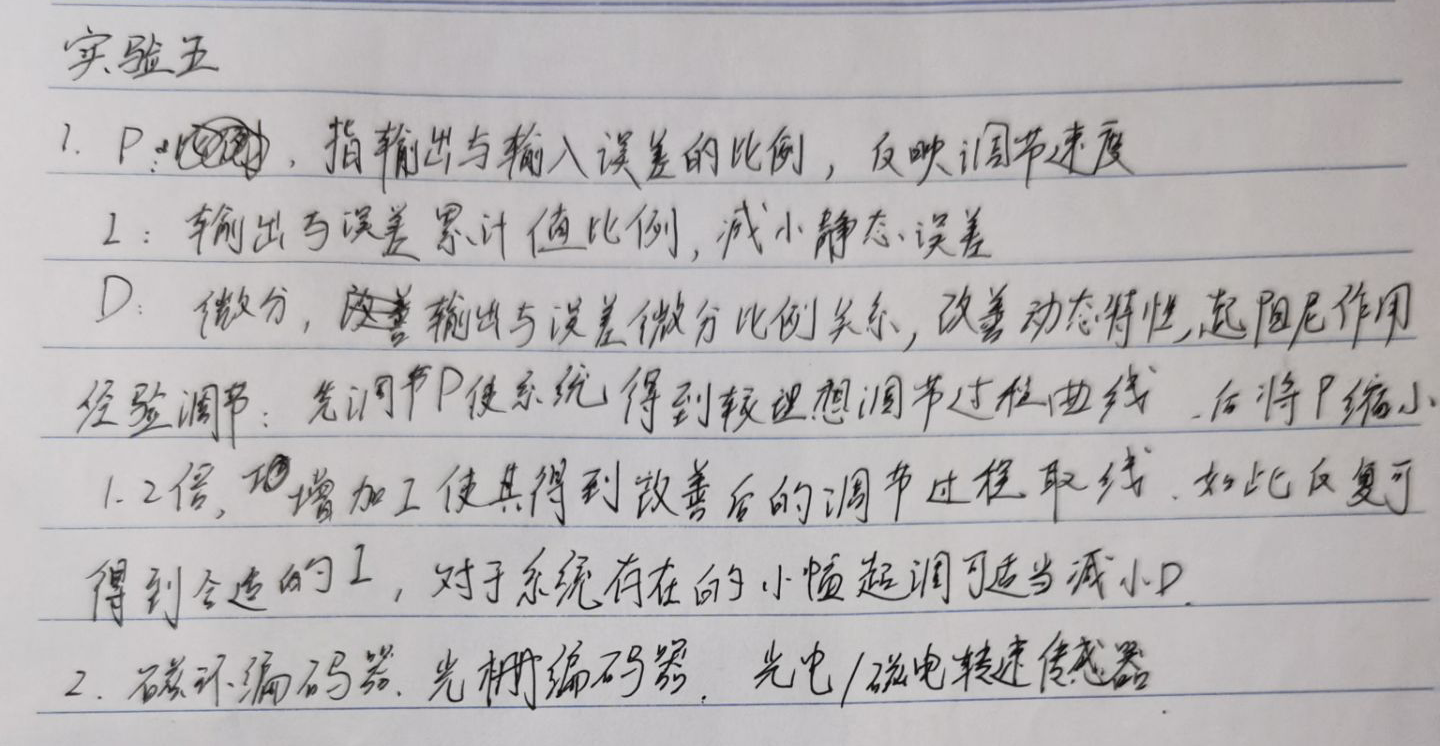 实验五
1. P: , 指输出与输入误差的比例, 反映调节速度
I: 输出与误差累计值比例, 减小静态误差
D: 微分, 输出与误差微分比例关系, 改善动态特性, 起阻尼作用
经验调节: 先调节P使系统得到较理想调节过程曲线、后将P缩小
1.2倍, 增加I使其得到改善后的调节过程取线、如此反复可
得到合适的I, 对于系统存在的小幅超调可适当减小D.
2. 磁环编码器、光栅编码器、光电/磁电转速传感器